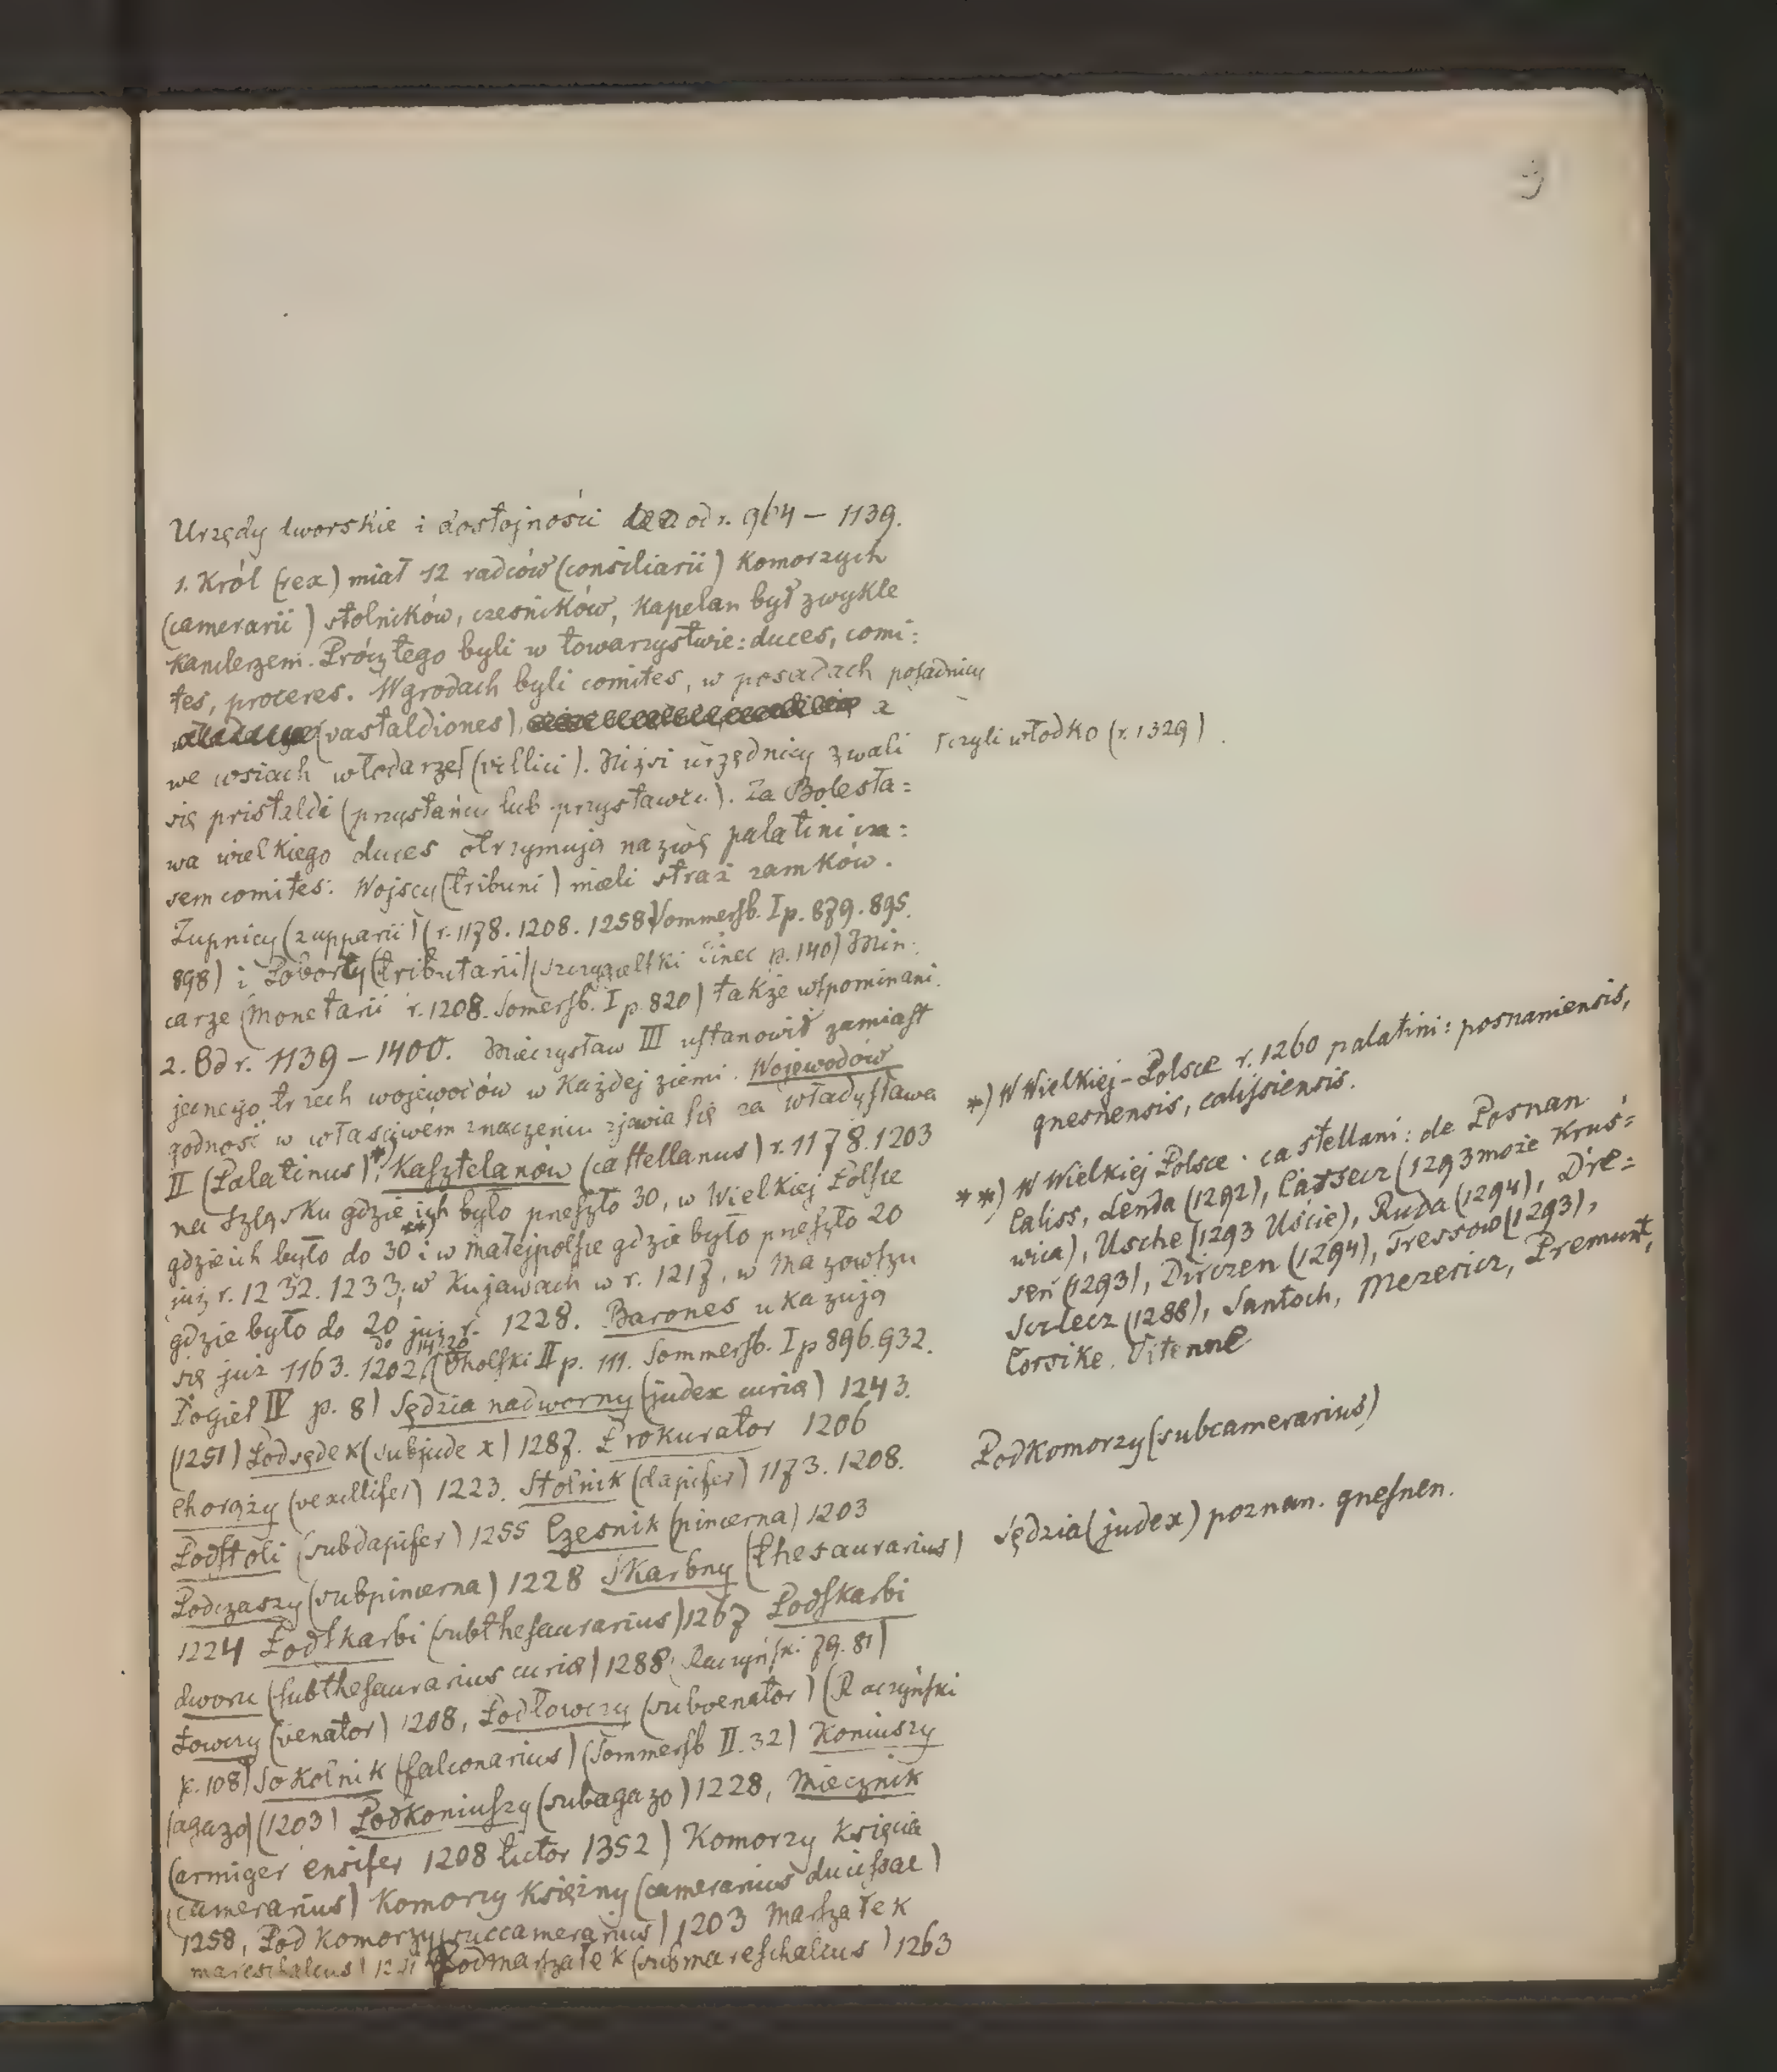 9
Urzędy dworskie i dostojności od r. 964 — 1139.
1. Król (rex) miał 12 radców (consiliarii) Komorzych
(camerarii) stolników, cześników, Kapelan był zwykle
Kanclerzem. Prócz tego byli w towarzystwie: duces, comi:
tes, proceres. W grodach byli comites, w posadach posadnicy
(vastaldiones), a
we wsiach włodarze ⌈(villici). Niżsi urzędnicy zwali
⌈czyli włodko (r. 1329)
się pristaldi (przystańcy lub przystawcy). Za Bolesła=
wa wielkiego duces otrzymują nazwę palatini cza=
sem comites. Wojscy (tribuni) mieli straż zamków.
Żupnicy (zupparii) (r. 1178. 1208. 1258 Sommersb. I p. 879. 895.
898) i Poborcy (tributarii) (Szczygielski Tinec p. 140) Min:
carze (Monetarii r. 1208. Somersb. I p. 820) także wspominani.
2. Od r. 1139 — 1400. Mieczysław III ustanowił zamiast
jednego trzech wojewodów w Każdej ziemi. Wojewodów
godność w właściwem znaczeniu zjawia się za Władysława
II (Palatinus)*), Kasztelanów (castellanus) r. 1178. 1203
na Szląsku gdzie ich było przeszło 30, w Wielkiej Polsce
gdzie ich było do 30 **) i w małejpolsce gdzie było przeszło 20
już r. 1232. 1233, w Kujawach w r. 1217, w Mazowszu
gdzie było do 20 już r. 1228. Barones ukazują
się już 1163. 1202 do 1420 (Okolski II p. 111. Sommersb. I p 896. 932.
Dogiel IV p. 8) Sędzia nadworny (judex curiæ) 1243.
(1251) Podsędek (subjudex) 1287. Prokurator 1206
Chorąży (vexillifer) 1223. Stolnik (dapifer) 1173. 1208.
Podstoli (subdapifer) 1255 Cześnik (pincerna) 1203
Podczaszy (subpincerna) 1228 Skarbny (thesaurarius)
1224 Podskarbi (subthesaurarius) 1267 Podskarbi
dworu (subthesaurarius curiæ) 1288 Raczyński 79. 81)
Łowczy (venator) 1208, Podłowczy (subvenator) (Raczyński
p. 108) Sokolnik (falconarius) (Sommersb II. 32) Koniuszy
(agazo) (1203) Podkoniuszy (subagazo) 1228, Miecznik
(armiger ensifer 1208 tutor 1352) Komorzy Księcia
(camerarius) Komorzy Księżny (camerarius ducissae)
1258, Podkomorzy (succamerarius) 1203 Marszałek
mareschalcus) Podmarszałek (submareschalcus) 1263
*) W Wielkiej-Polsce r. 1260 palatini: posnaniensis,
gnesnensis, calissiensis.
**) W Wielkiej Polsce: castellani: de Posnan
Caliss, Lenda (1292), (1293 może Krus=
wica), Usche (1293 Uście), Ruda (1294), Dre=
sen (1293), Dirczen (1294), Tressow (1293),
(1288), Santoch, Mezericz, Premunt,
Corsike. Vitenne
Podkomorzy (subcamerarius)
Sędzia (judex) poznan. gnesnen.